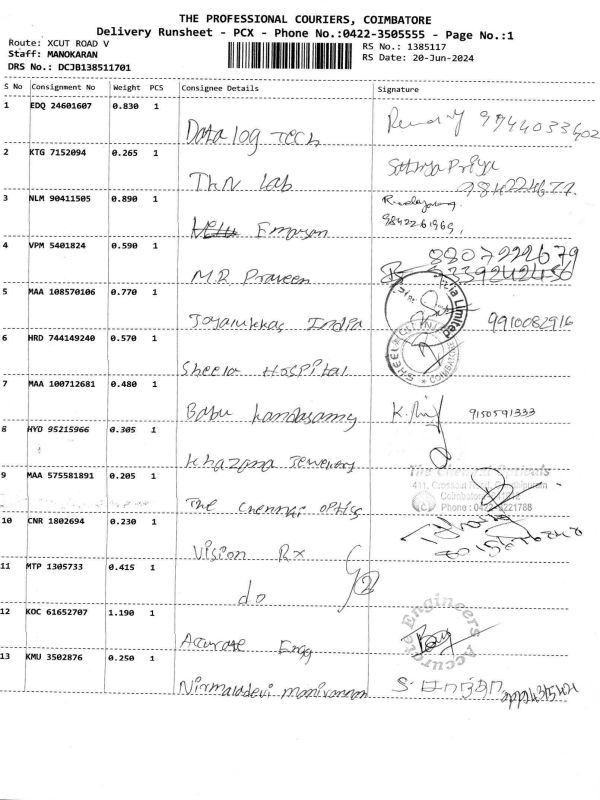 THE PROFESSIONAL COURIERS, COIMBATORE
Delivery Runsheet - PCX - Phone No.:0422-3505555 - Page No.:1
Route: XCUT ROAD V
Staff: MANOKARAN
DRS No.: DCJB138511701
RS No.: 1385117
RS Date: 20-Jun-2024
S No Consignment No Weight PCS Consignee Details Signature
1 EDQ 24601607 0.830 1
Datalog Tech 9944033402
2 KTG 7152094 0.265 1
Sathya Priya
ThN Lab
3 NLM 90411505 0.890 1
9842261969,
Emarson
4 VPM 5401824 0.590 1
8807222679
M.R Praveen
5 MAA 108570106 0.770 1
ia Limited
Joyalukkas India 9910082916
6 HRD 744149240 0.570 1
SHEELA CLINIC COIMBATORE
Sheela Hospital
7 MAA 100712681 0.480 1
Babu kandasamy K. 9150591333
8 HYD 95215966 0.305 1
Khazana Jewellery
9 MAA 575581891 0.205 1
The Chennai Opticals
411, Crosscut Road, Gandhipuram
Coimbatore
Phone : 0422 6221788
The Chennai Optics
10 CNR 1802694 0.230 1
Vision Rx
11 MTP 1305733 0.415 1
do 2
12 KOC 61652707 1.190 1
Accurate Engineers
Accurate Engg
13 KMU 3502876 0.250 1
Nirmaladevi manivannan